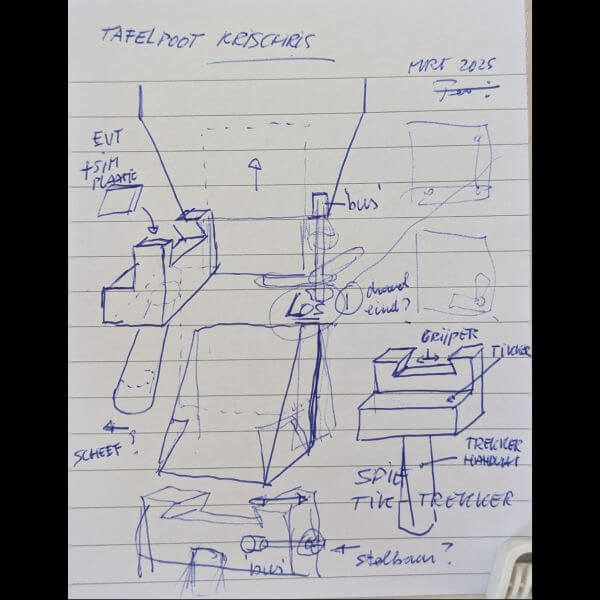 TAFELPOOT KRISCHRIS
MRT 2025
EVT
+SIM
PLAATJE
bus
LOS
1
draad
eind?
GRIJPER
TIKKER
SCHEEF?
TREKKER
HANDVAT
SPIE
TIK-TREKKER
bus
stelbaar?